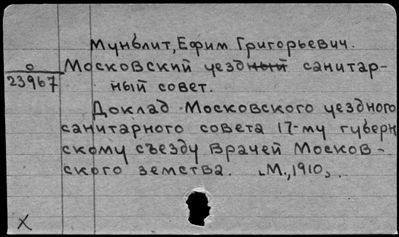 Мунблит, Ефим Григорьевич.
О Московский уездный санитар-
23967 ный совет.
Доклад Московского уездного
санитарного совета 17-му губерн
скому съезду врачей Москов-
ского земства. М., 1910, ..
X